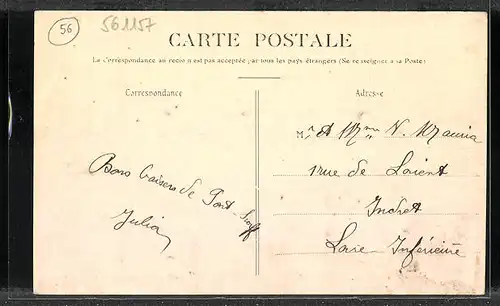 56
561157
CARTE POSTALE
La correspondance au recto n'est pas acceptée par tous les pays étrangers (Se renseigner à la Poste)
Correspondance
Adresse
M. et Mme V. Mauria
1 rue de Lorient
Indret
Loire Inférieure
Bons baisers de Pont-Scorff
Julia